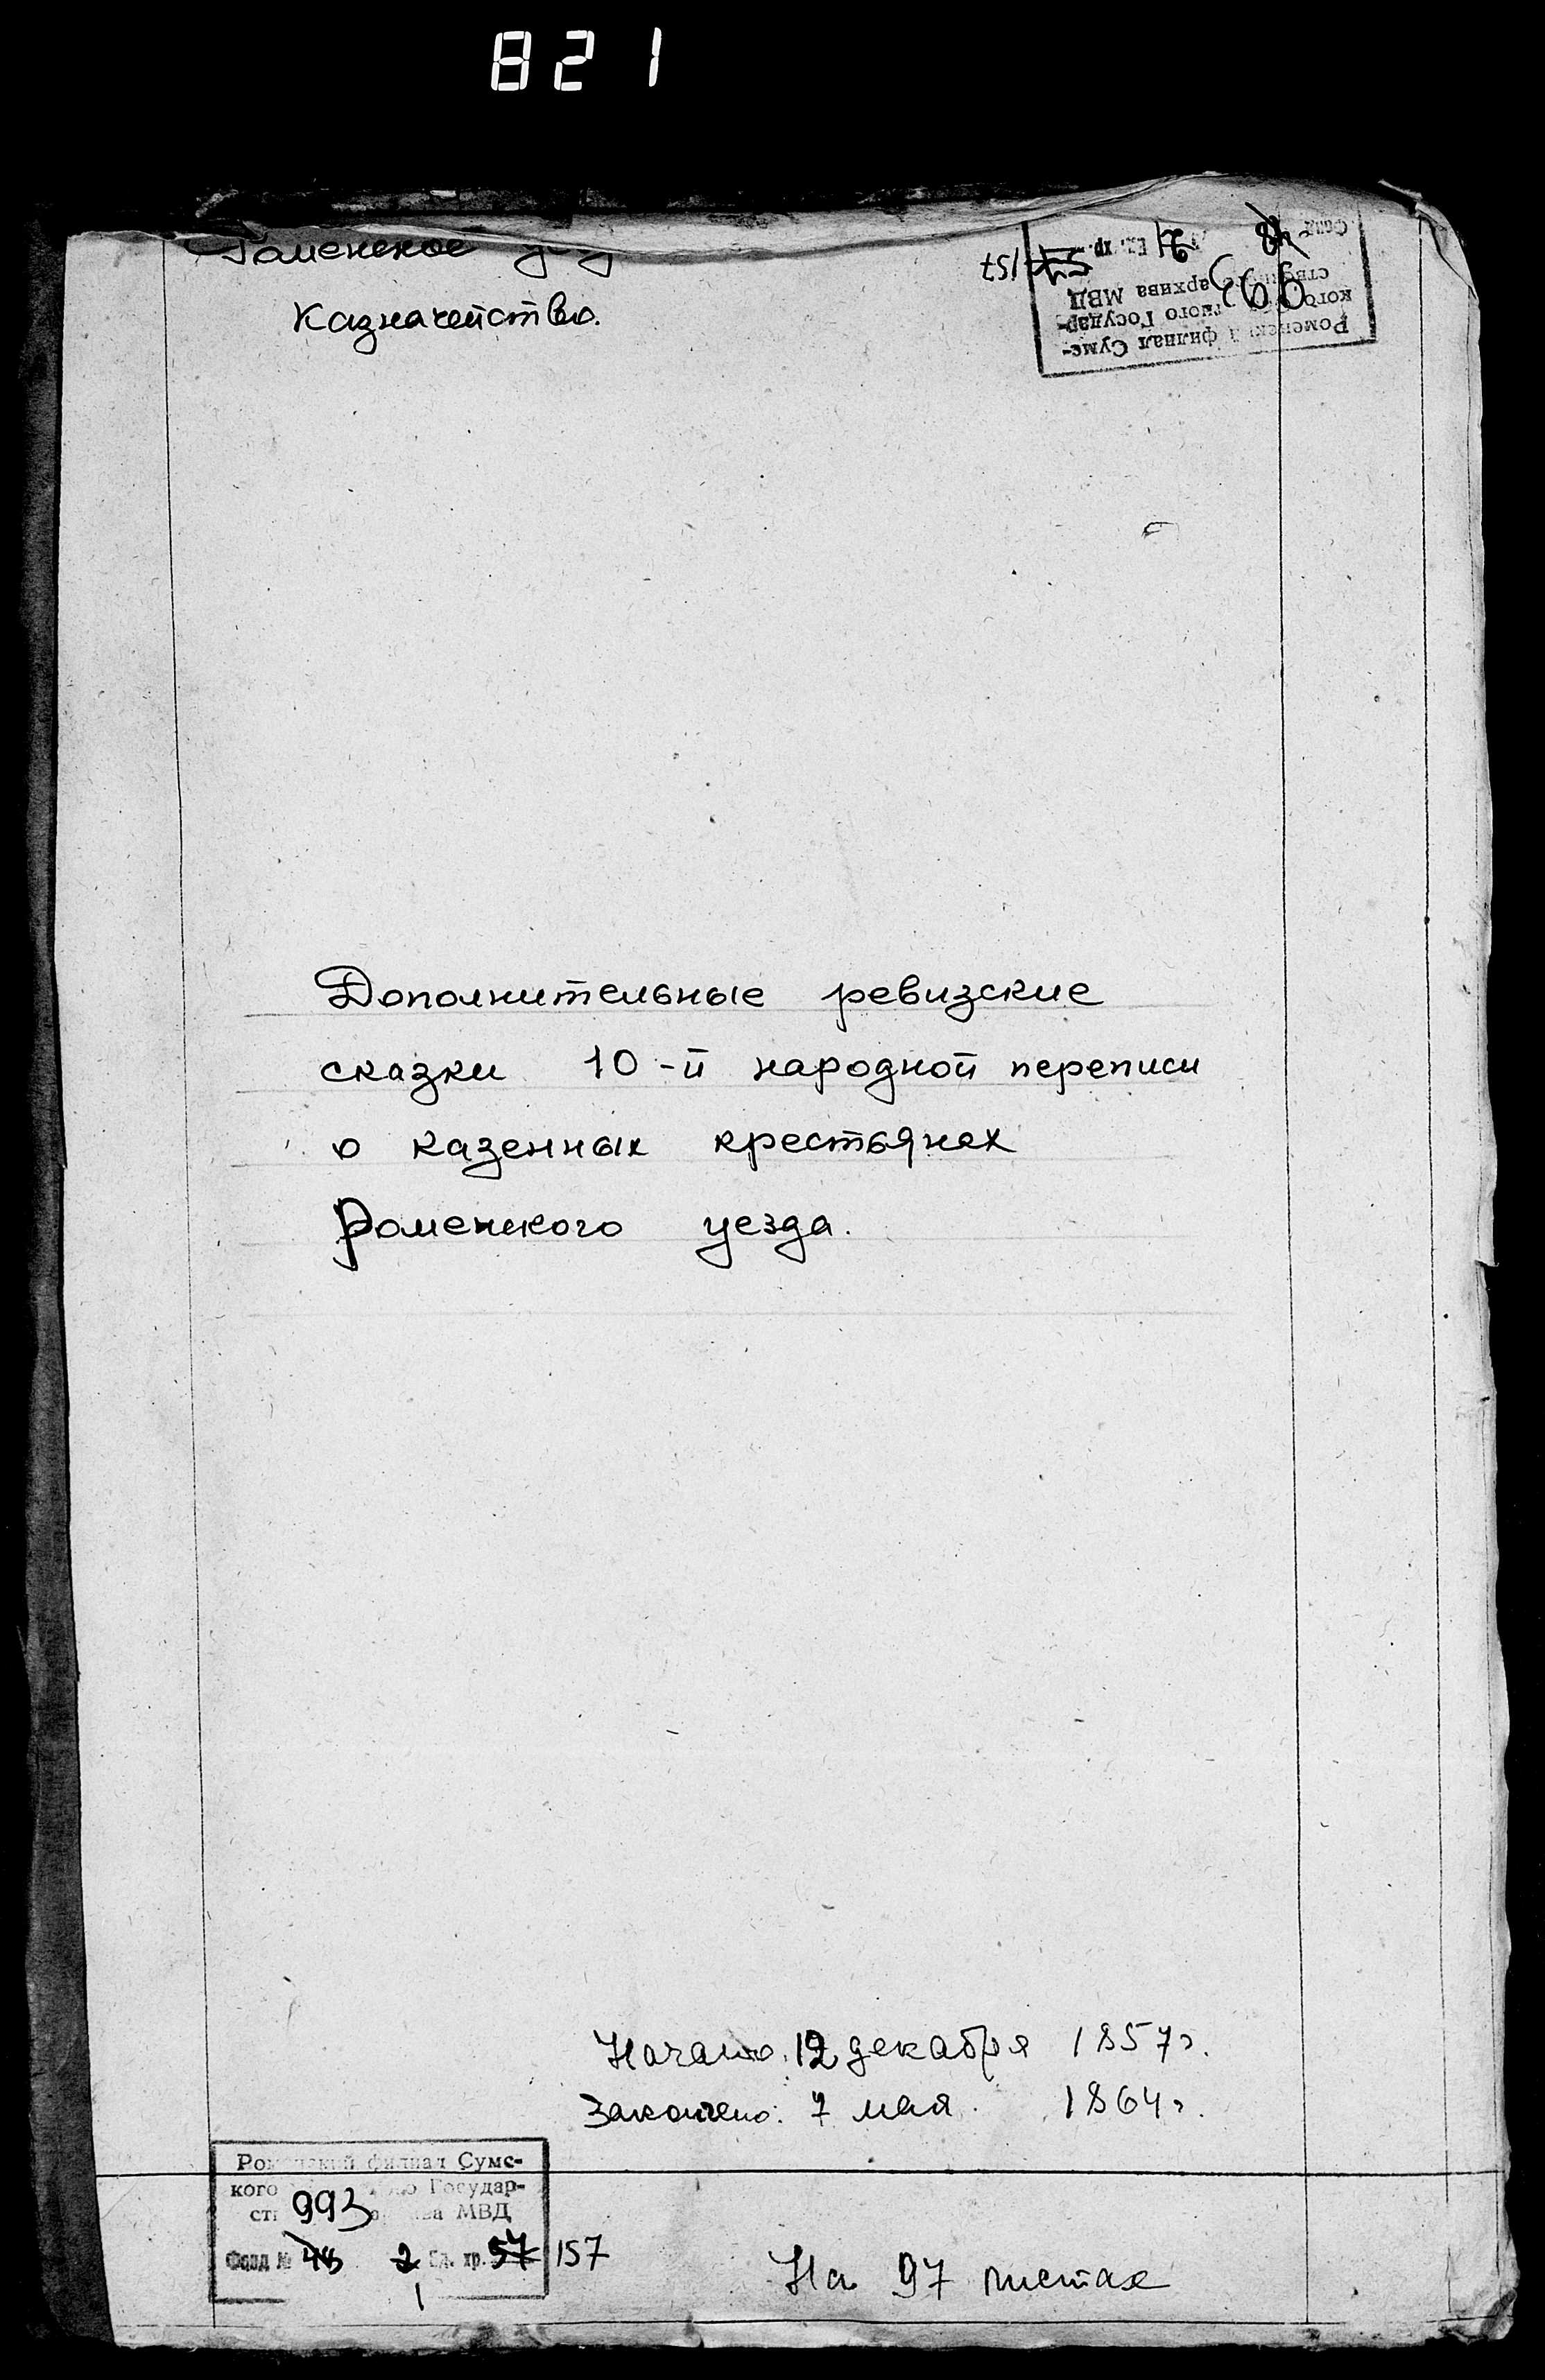 821
Роменское
Казначейство.
157
993
Роменский филиал Сумс-
кого Государ-
архива МВД
Дополнительные ревизские
сказки 10-й народной переписи
о казенных крестьянах
Роменского уезда.
Начато: 12 декабря 1857г.
Закончено: 7 мая. 1864г.
Роменский филиал Сумс-
кого Государ-
993 МВД
Фонд № 48 2 Ед. хр. 57 157
1
На 97 листах